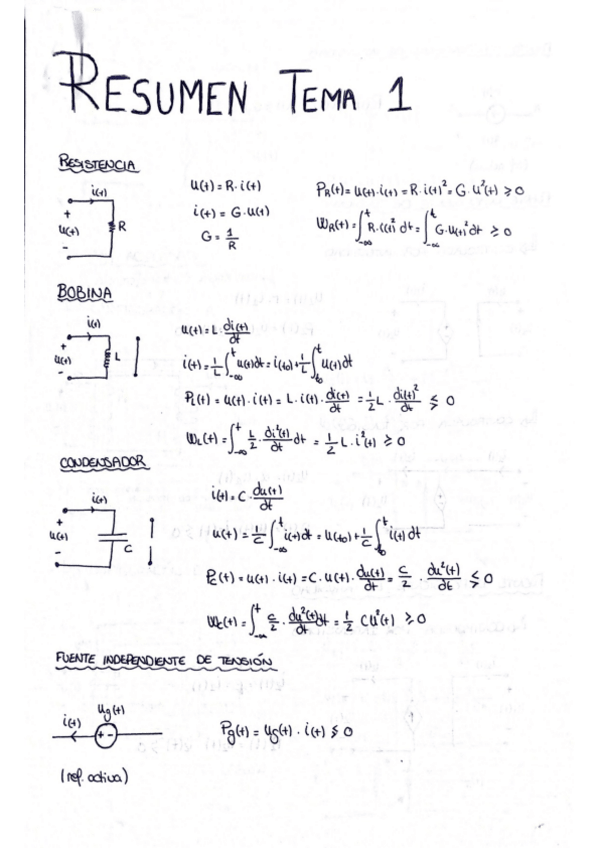 RESUMEN TEMA 1
RESISTENCIA
i(t)
+
u(t)
-
R
u(t) = R · i(t)
i(t) = G · u(t)
G = 1/R
P_R(t) = u(t) · i(t) = R · i(t)² = G · u²(t) ≥ 0
W_R(t) = ∫_{-∞}^{t} R · i(t)² dt = ∫_{-∞}^{t} G · u(t)² dt ≥ 0
BOBINA
i(t)
+
u(t)
-
L
u(t) = L · di(t)/dt
i(t) = 1/L ∫_{-∞}^{t} u(t)dt = i(t0) + 1/L ∫_{t0}^{t} u(t)dt
P_L(t) = u(t) · i(t) = L · i(t) · di(t)/dt = 1/2 L · di(t)²/dt ≶ 0
W_L(t) = ∫_{-∞}^{t} L/2 · di²(t)/dt dt = 1/2 L · i²(t) ≥ 0
CONDENSADOR
i(t)
+
u(t)
-
C
i(t) = C · du(t)/dt
u(t) = 1/C ∫_{-∞}^{t} i(t)dt = u(t0) + 1/C ∫_{t0}^{t} i(t)dt
P_C(t) = u(t) · i(t) = C · u(t) · du(t)/dt = C/2 · du²(t)/dt ≶ 0
W_C(t) = ∫_{-∞}^{t} C/2 · du²(t)/dt dt = 1/2 C u²(t) ≥ 0
FUENTE INDEPENDIENTE DE TENSIÓN
u_g(t)
i(t)
+ -
P_g(t) = u_g(t) · i(t) ≶ 0
(ref. activa)